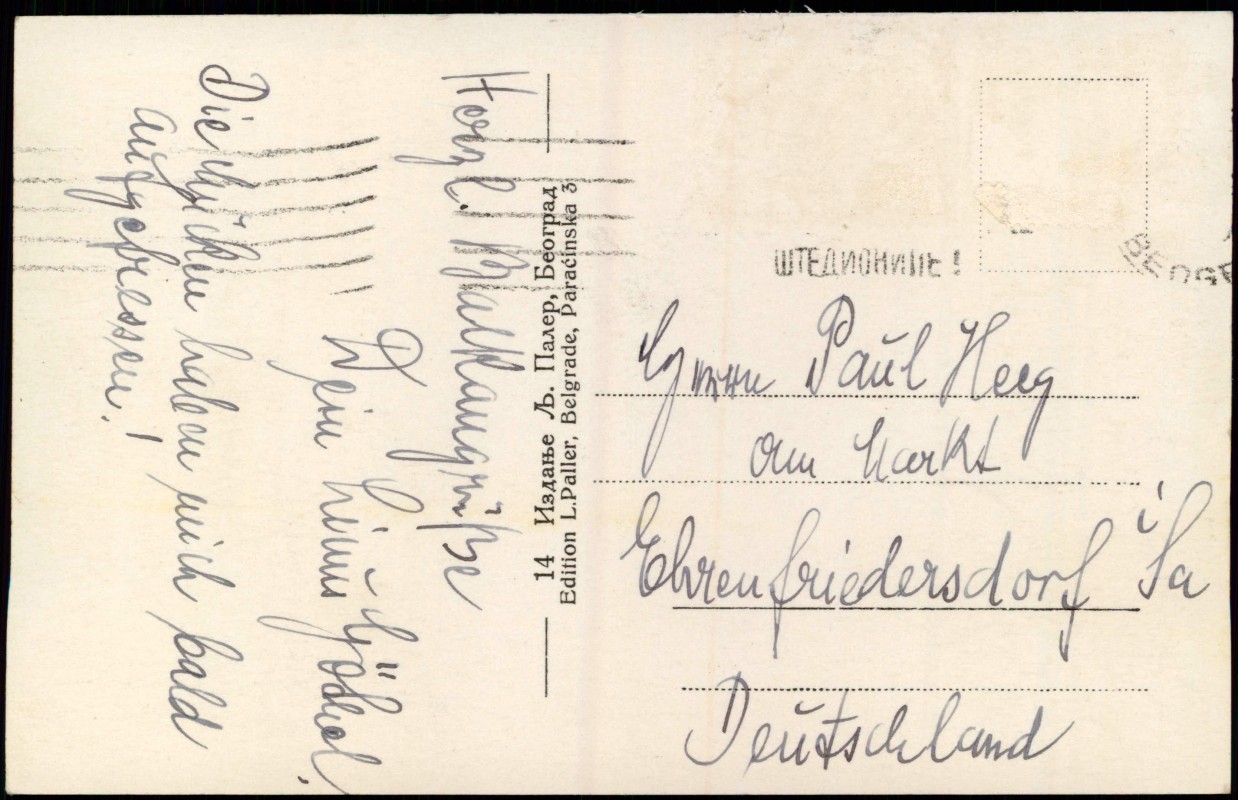 Herzl. Balkangrüße
Dein
Die Mücken haben mich bald
aufgefressen!
14 Издање Љ. Палер, Београд
Edition L.Paller, Belgrade, Paraćinska 3
ШТЕДИОНИЦЕ!
BEOGR
Paul Heeg
am Markt
Ehrenfriedersdorf i Sa
Deutschland